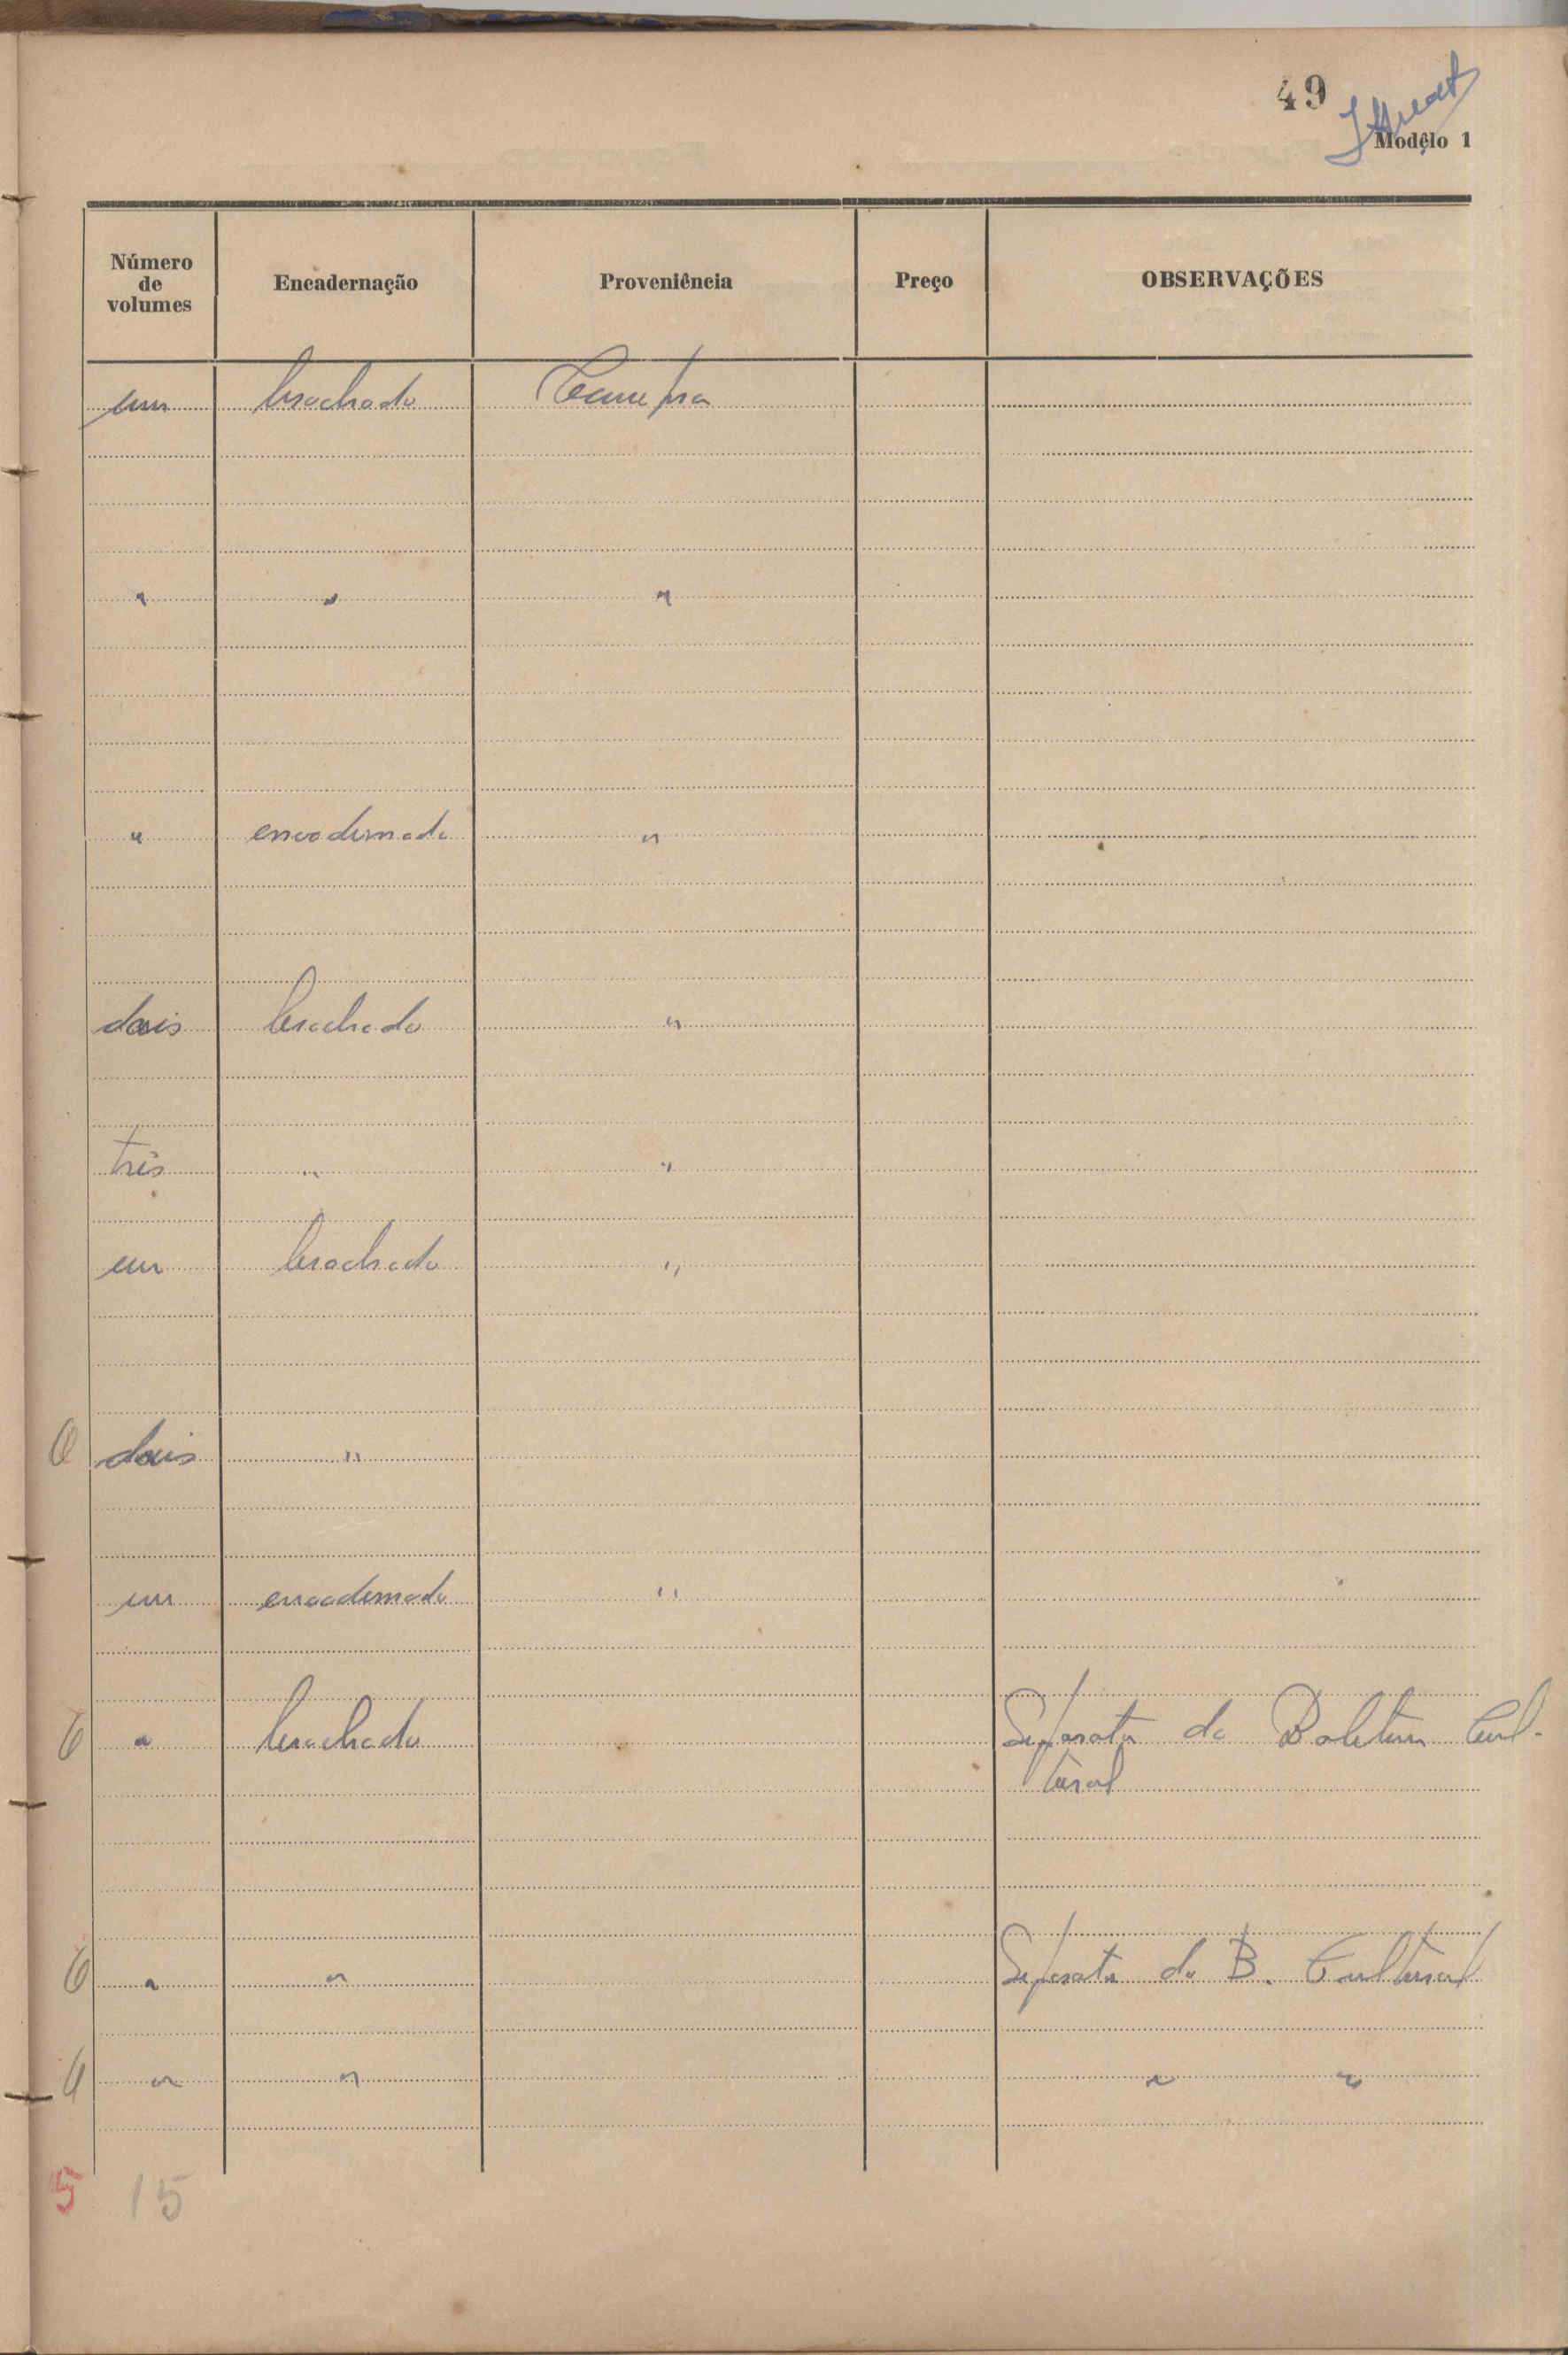 49
Modêlo 1
Número de volumes Encadernação Proveniência Preço OBSERVAÇÕES
um brochado Compra
" " "
" encadernado "
dois brochado "
três " "
um brochado "
dois "
um encadernado "
" brochado Separata do Boletim Cul-
tural
" " Separata do B. Cultural
" " " "
5 15